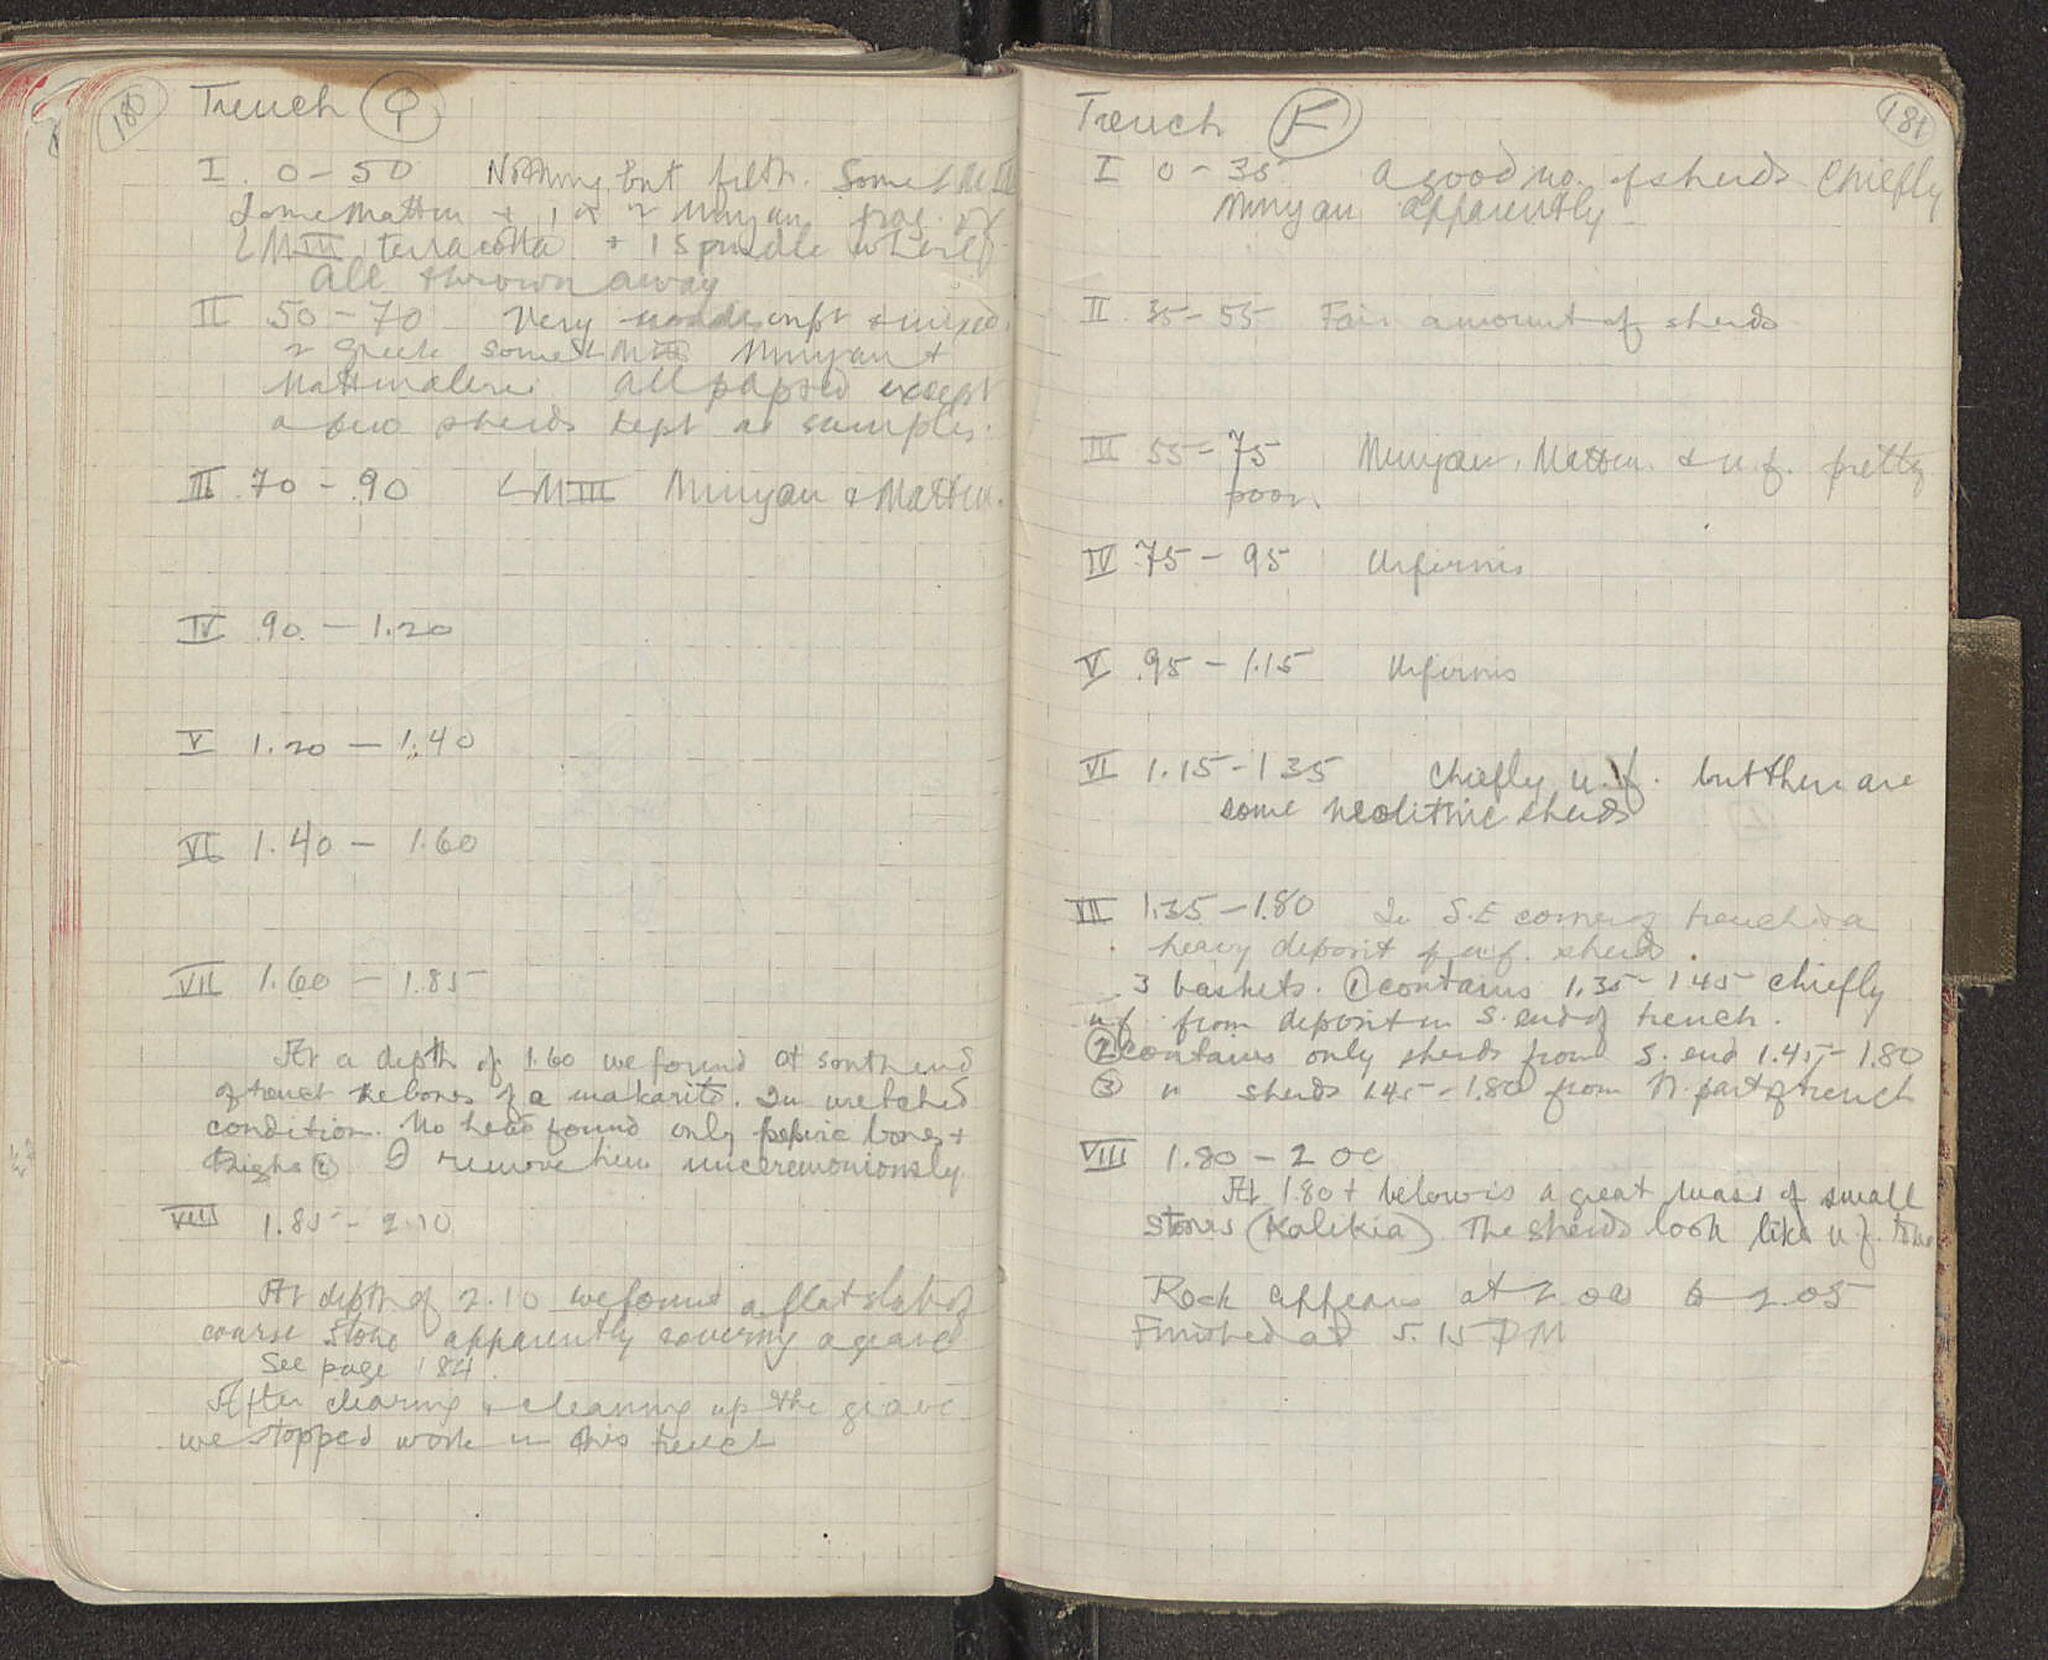 180
Trench Q
I. 0 - 50 Nothing but filth. Some LM III
Some Mattm + 1 or 2 Minyan frag. of
LM III terracotta + 1 spindle whorl
All thrown away
II 50 - 70 Very nondescript & mixed.
2 Greek some LM III Minyan +
Mattmalerei All papsed except
a few sherds kept as samples.
III .70 - .90 LM III Minyan & Mattm.
IV .90. - 1.20
V 1.20 - 1.40
VI 1.40 - 1.60
VII 1.60 - 1.85
At a depth of 1.60 we found at south end
of trench the bones of a makarite. In wretched
condition. No head found only pelvic bones +
thighs I remove him unceremoniously.
VIII 1.85 - 2.10
At depth of 2.10 we found a flat slab of
coarse stone apparently covering a grave
See page 184.
After clearing & cleaning up the grave
we stopped work in this trench
181
Trench F
I 0 - 35 A good no. of sherds Chiefly
Minyan apparently
II. 35 - 55 Fair amount of sherds
III 55 - 75 Minyan, Mattm. & u.f. pretty
poor.
IV .75 - 95 Urfirnis
V .95 - 1.15 Urfirnis
VI 1.15 - 1 35 Chiefly u.f. but there are
some neolithic sherds
VII 1.35 - 1.80 In S.E corner of trench is a
heavy deposit of u.f. sherds.
3 baskets. ① contains 1.35 - 1 45 chiefly
u f from deposit in S. end of trench.
② contains only sherds from S. end 1.45 - 1.80
③ " sherds 1.45 - 1.80 from N. part of trench
VIII 1.80 - 2 00
At 1.80 + below is a great mass of small
stones (Kalikia). The sherds look like u.f. to me
Rock appears at 2 00 to 2.05
Finished at 5.15 PM